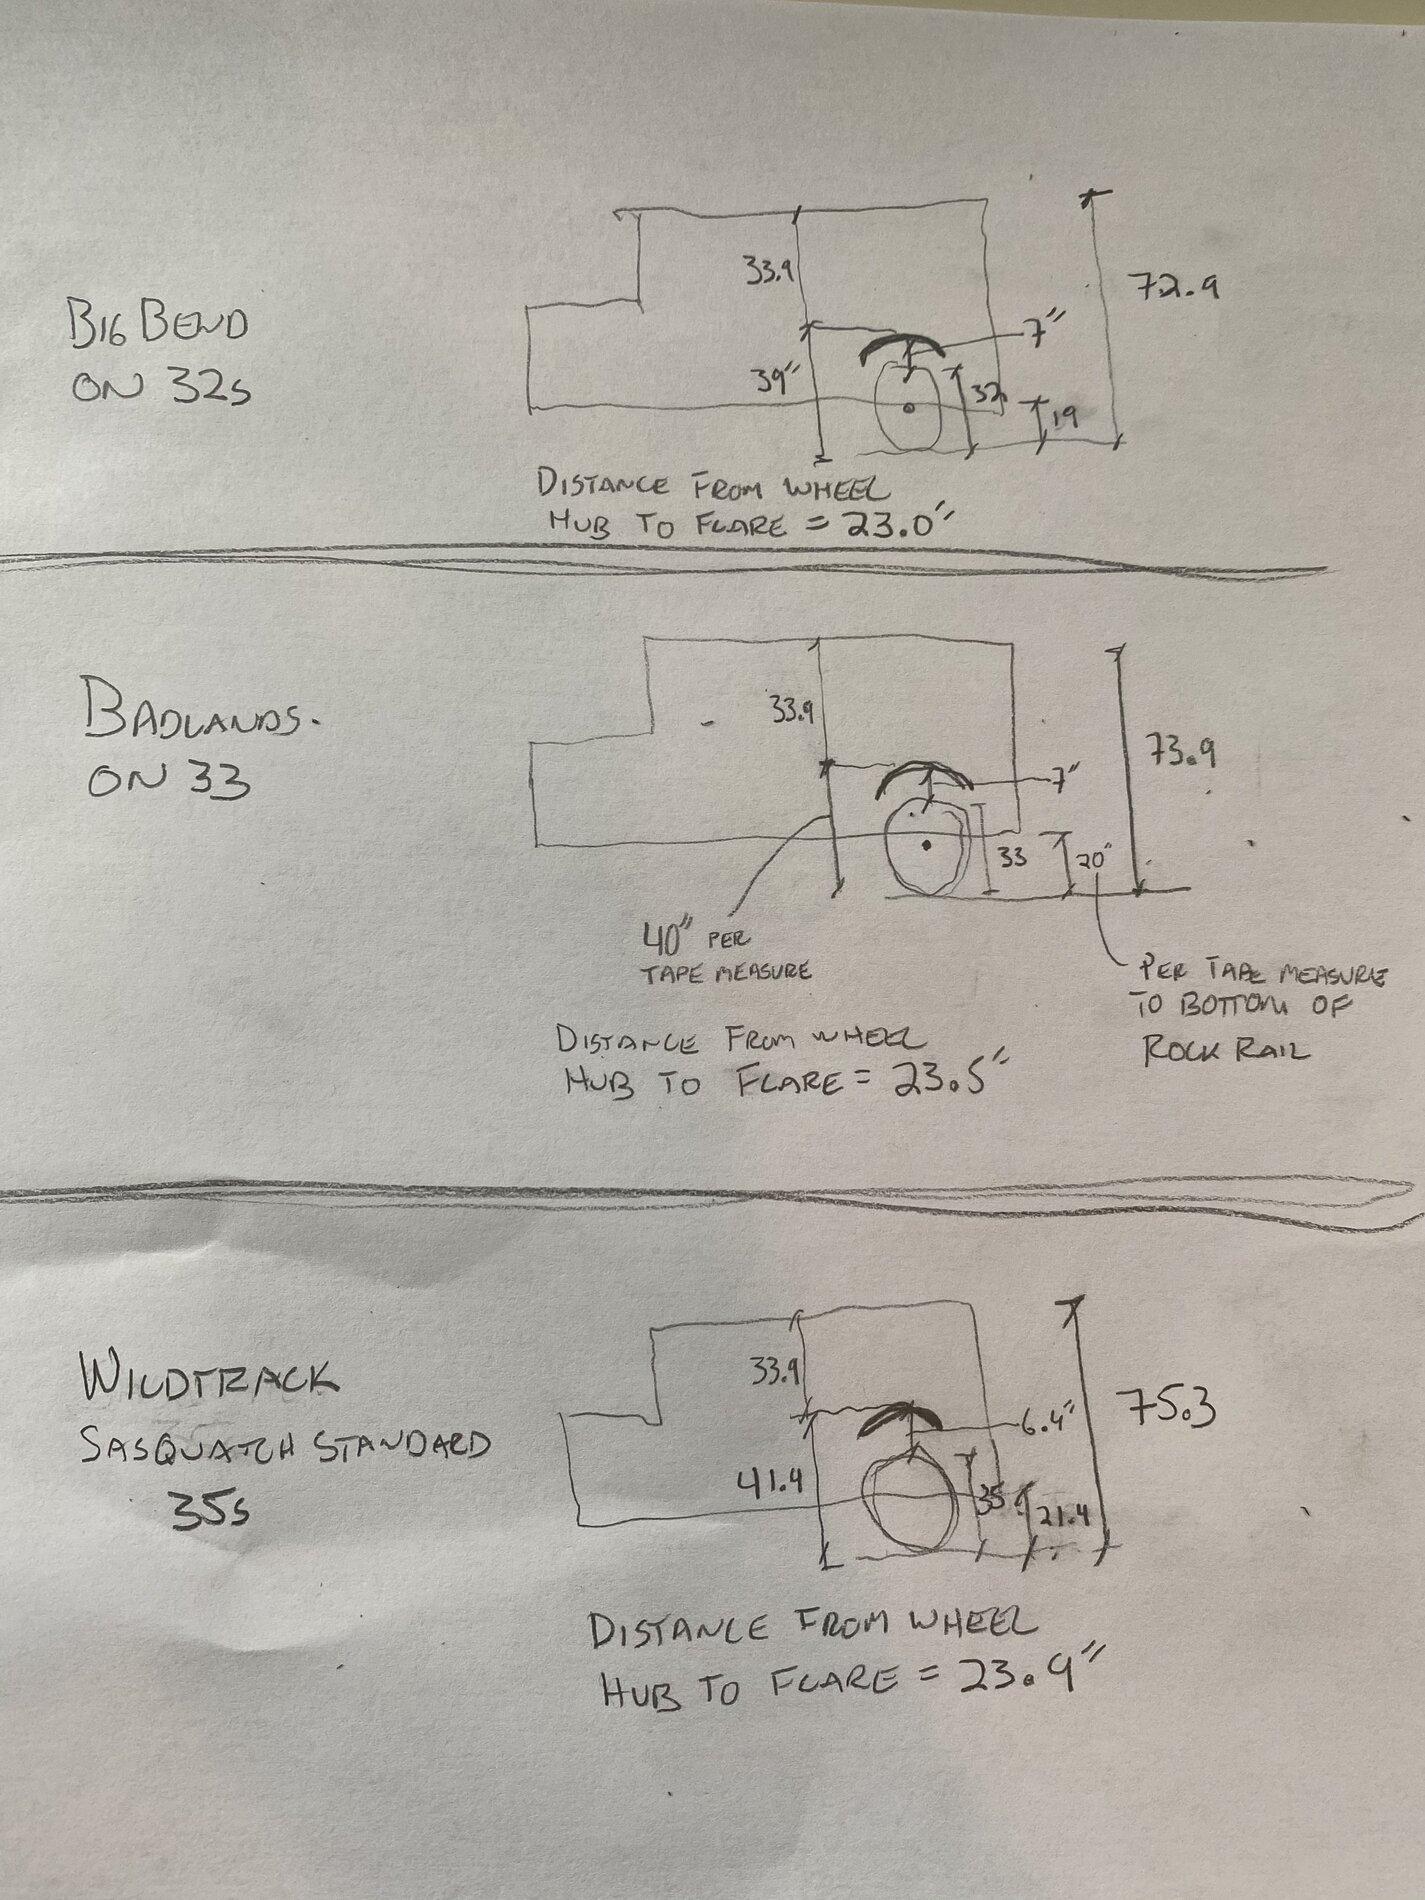 BIG BEND
ON 32s
33.9
39"
7"
32
19
72.9
DISTANCE FROM WHEEL
HUB TO FLARE = 23.0"
BADLANDS.
ON 33
33.9
7"
33
20"
73.9
40" PER
TAPE MEASURE
PER TAPE MEASURE
TO BOTTOM OF
ROCK RAIL
DISTANCE FROM WHEEL
HUB TO FLARE = 23.5"
WILDTRACK
SASQUATCH STANDARD
35s
33.9
41.4
6.4"
35
21.4
75.3
DISTANCE FROM WHEEL
HUB TO FLARE = 23.9"